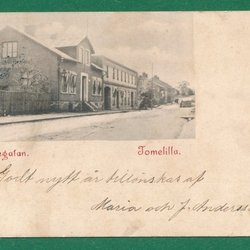 egatan. Tomelilla.
Godt nytt år tillönskas af
Maria och J. Anderss